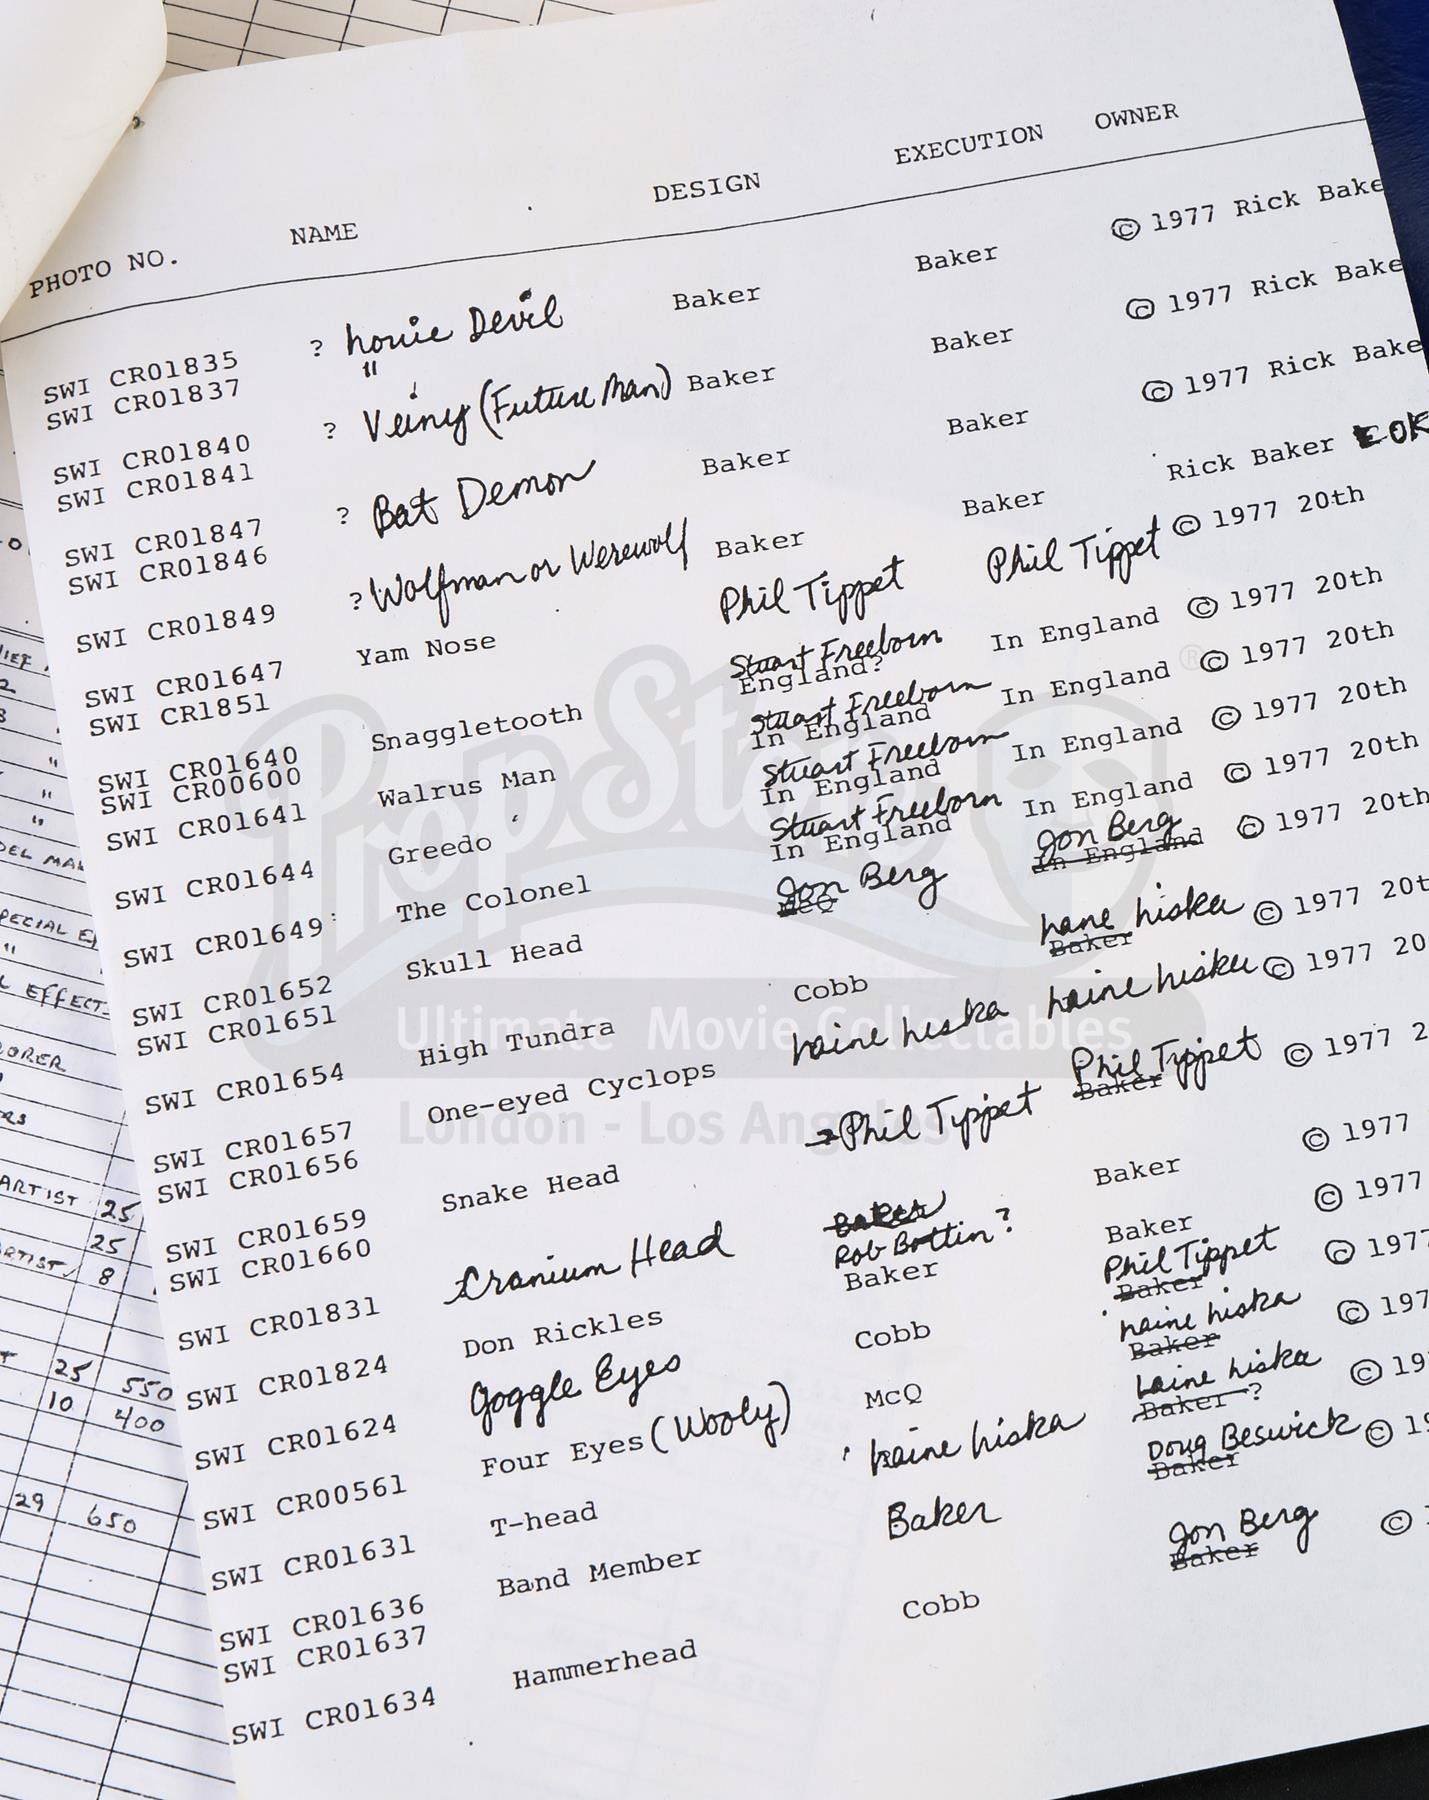 PHOTO NO. NAME DESIGN EXECUTION OWNER
SWI CR01835 ? Louie Devil Baker Baker © 1977 Rick Bake
SWI CR01837 "
SWI CR01840 ? Veiny (Future Man) Baker Baker © 1977 Rick Bake
SWI CR01841
SWI CR01847 ? Bat Demon Baker Baker © 1977 Rick Bake
SWI CR01846
SWI CR01849 ? Wolfman or Werewolf Baker Baker Rick Baker OK
SWI CR01647 Yam Nose Phil Tippet Phil Tippet © 1977 20th
SWI CR1851
SWI CR01640 Snaggletooth Stuart Freeborn England? In England © 1977 20th
SWI CR00600
SWI CR01641 Walrus Man Stuart Freeborn In England In England © 1977 20th
SWI CR01644 Greedo Stuart Freeborn In England In England © 1977 20th
SWI CR01649 The Colonel Stuart Freeborn In England In England © 1977 20th
SWI CR01652 Skull Head Jon Berg McQ Jon Berg In England © 1977 20th
SWI CR01651
SWI CR01654 High Tundra Cobb Laine Liska Baker © 1977 20t
SWI CR01657 One-eyed Cyclops Laine Liska Laine Liska © 1977 20
SWI CR01656
SWI CR01659 Snake Head Phil Tippet Phil Tippet Baker © 1977 2
SWI CR01660
SWI CR01831 Cranium Head Baker Rob Bottin? Baker © 1977
SWI CR01824 Don Rickles Baker Baker © 1977
SWI CR01624 Goggle Eyes Cobb Phil Tippet Baker © 1977
SWI CR00561 Four Eyes (Wooly) McQ Laine Liska Baker © 197
SWI CR01631 T-head Laine Liska Laine Liska Baker ? © 19
SWI CR01636 Band Member Baker Doug Beswick Baker © 19
SWI CR01637
SWI CR01634 Hammerhead Cobb Jon Berg Baker © 1
PropStore ®
Ultimate Movie Collectables
London - Los Angeles
EFFECT
ARTIST 25
25
8
25 550
10 400
29 650